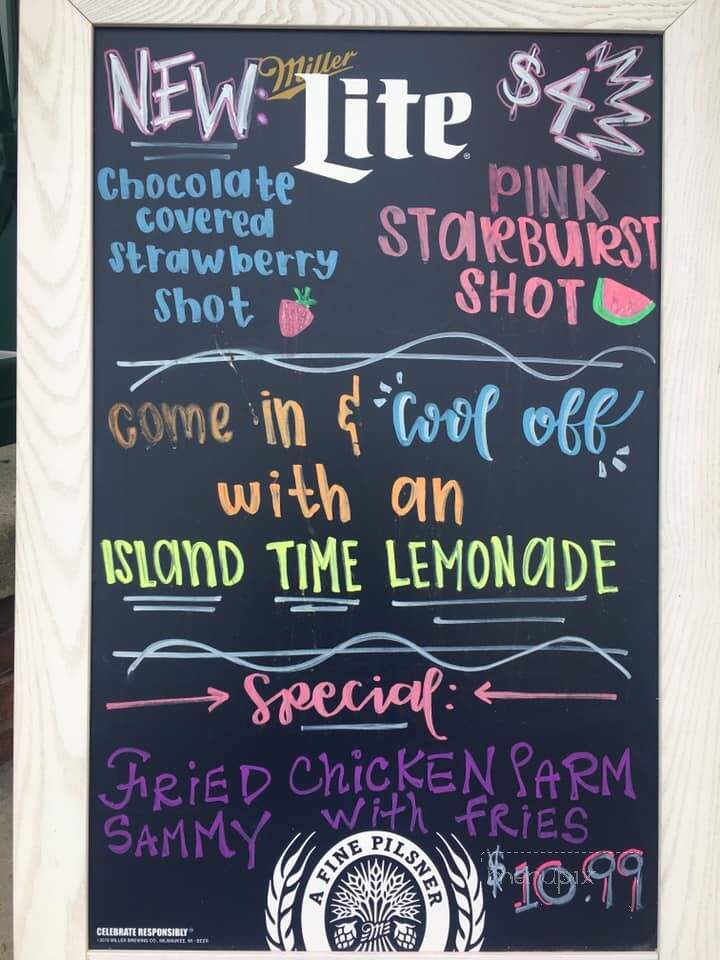 NEW:
Miller
Lite
$4
Chocolate
covered
strawberry
shot
PINK
STARBURST
SHOT
come in & cool off
with an
ISLAND TIME LEMONADE
Special:
FRIED CHICKEN PARM
SAMMY with FRIES
$10.99
menupix
A FINE PILSNER
CELEBRATE RESPONSIBLY®